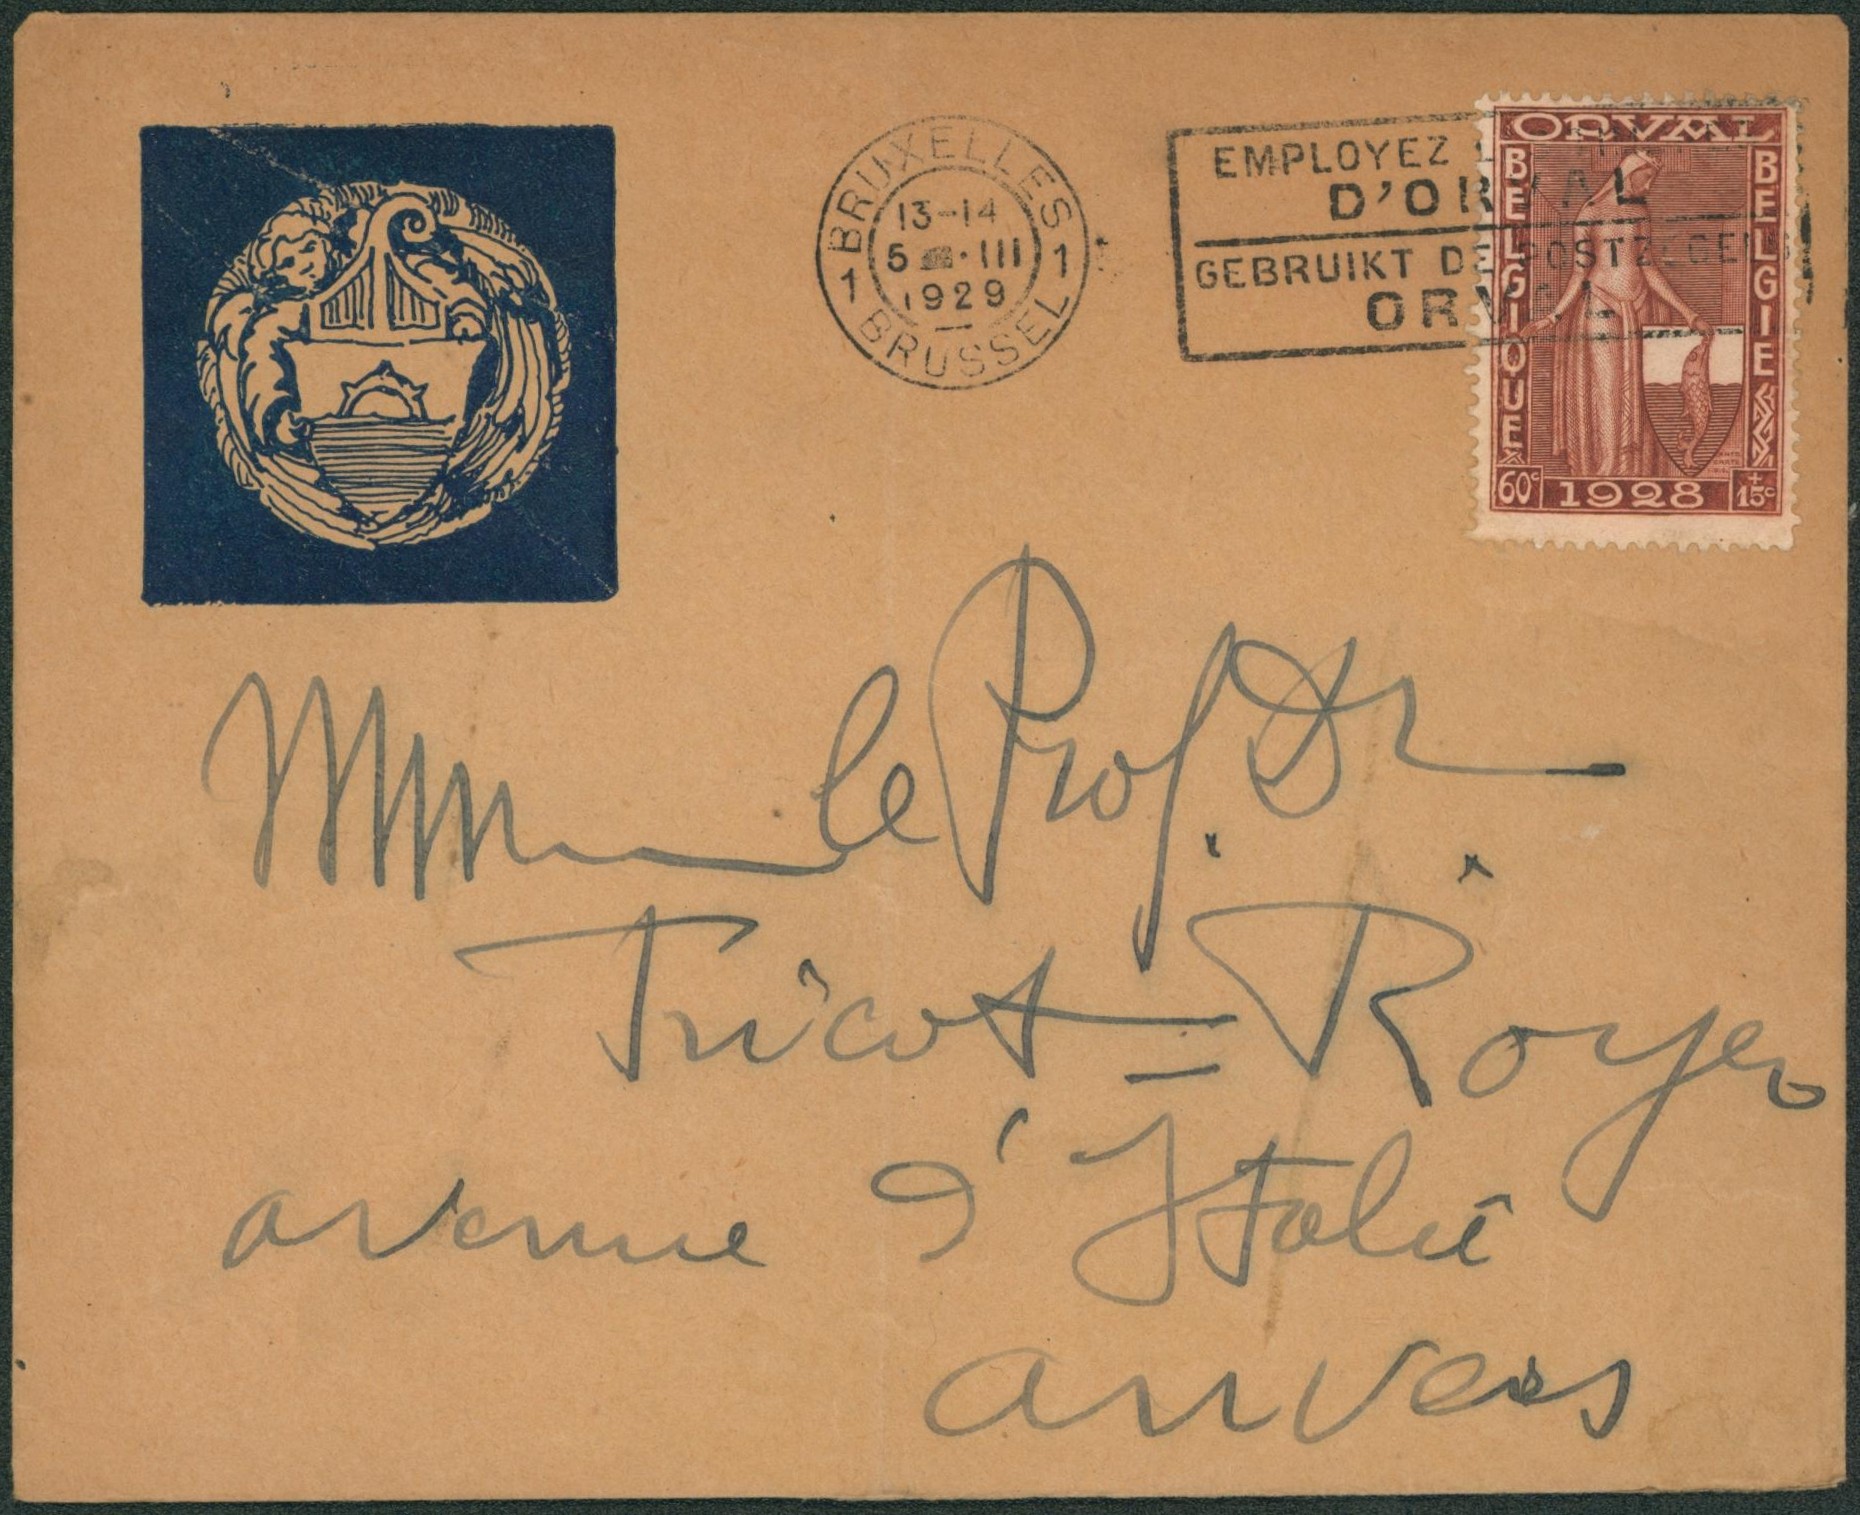 BRUXELLES
1 1
13-14
5 III
1929
BRUSSEL
EMPLOYEZ
D'ORVAL
GEBRUIKT DE POSTZEGELS
ORVAL
ORVAL
BELGIQUE
BELGIE
60c 1928 +15c
le Prof. Dr
Tricot=Royer
avenue d'Italie
anvers